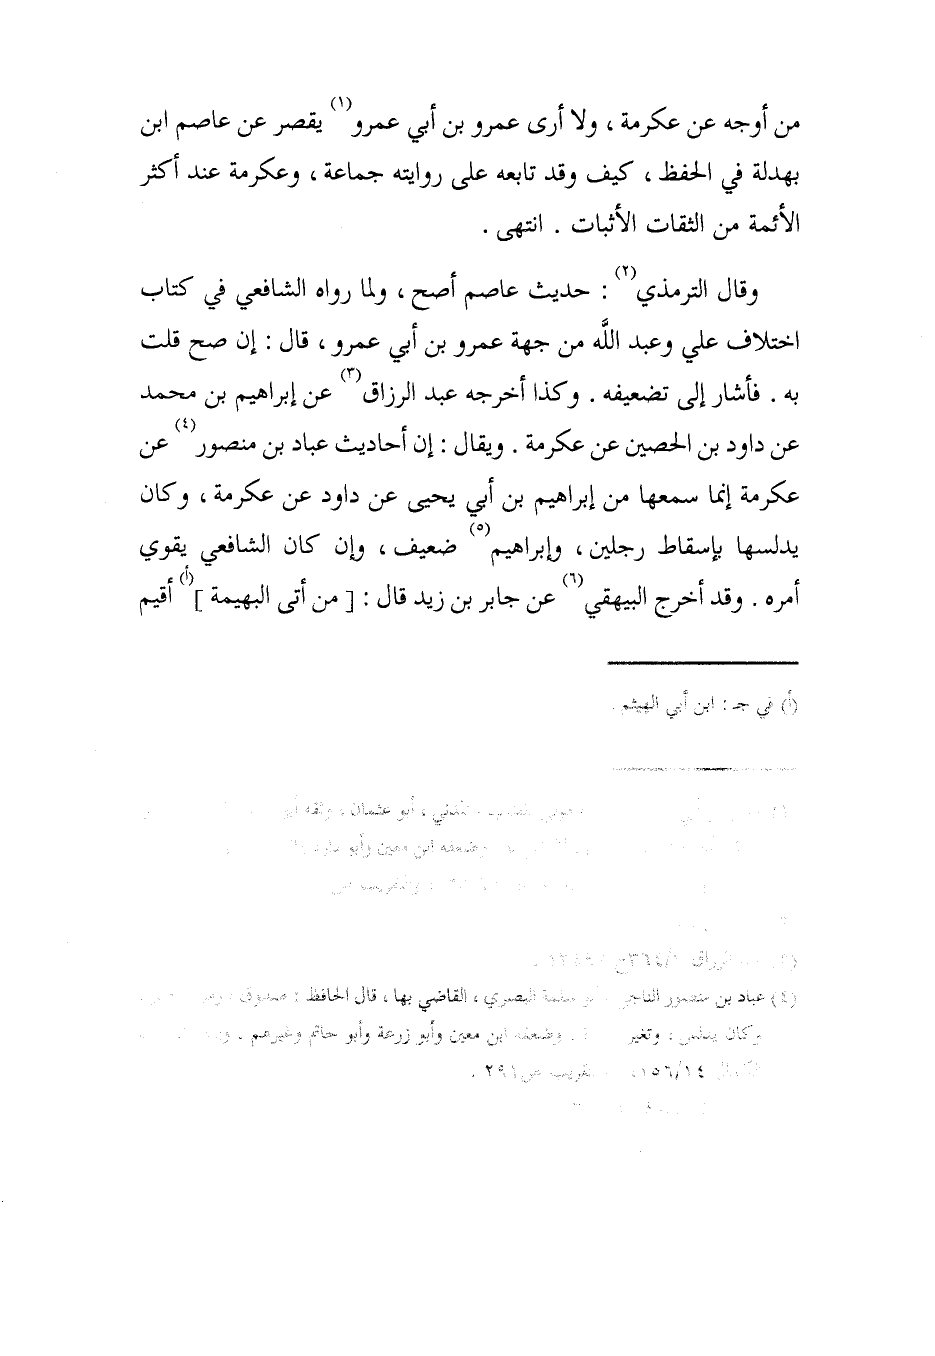 من أوجه عن عكرمة ، ولا أرى عمرو بن أبي عمرو(١) يقصر عن عاصم ابن
بهدلة في الحفظ ، كيف وقد تابعه على روايته جماعة ، وعكرمة عند أكثر
الأئمة من الثقات الأثبات . انتهى .
وقال الترمذي(٢) : حديث عاصم أصح ، ولما رواه الشافعي في كتاب
اختلاف علي وعبد اللَّه من جهة عمرو بن أبي عمرو ، قال : إن صح قلت
به . فأشار إلى تضعيفه . وكذا أخرجه عبد الرزاق(٣) عن إبراهيم بن محمد
عن داود بن الحصين عن عكرمة . ويقال : إن أحاديث عباد بن منصور(٤) عن
عكرمة إنما سمعها من إبراهيم بن أبي يحيى عن داود عن عكرمة ، وكان
يدلسها بإسقاط رجلين ، وإبراهيم(٥) ضعيف ، وإن كان الشافعي يقوي
أمره . وقد أخرج البيهقي(٦) عن جابر بن زيد قال : [ من أتى البهيمة ](أ) أقيم
(أ) في جـ : ابن أبي الهيثم .
المدني ، أبو عثمان ، وثقه
وضعفه ابن معين وأبو
(٤) عباد بن منصور الناجي أبو سلمة البصري ، القاضي بها ، قال الحافظ : صدوق
وكان يدلس ، وتغير . وضعفه ابن معين وأبو زرعة وأبو حاتم وغيرهم .
١٥٦/١٤، التقريب ص٢٩١ .